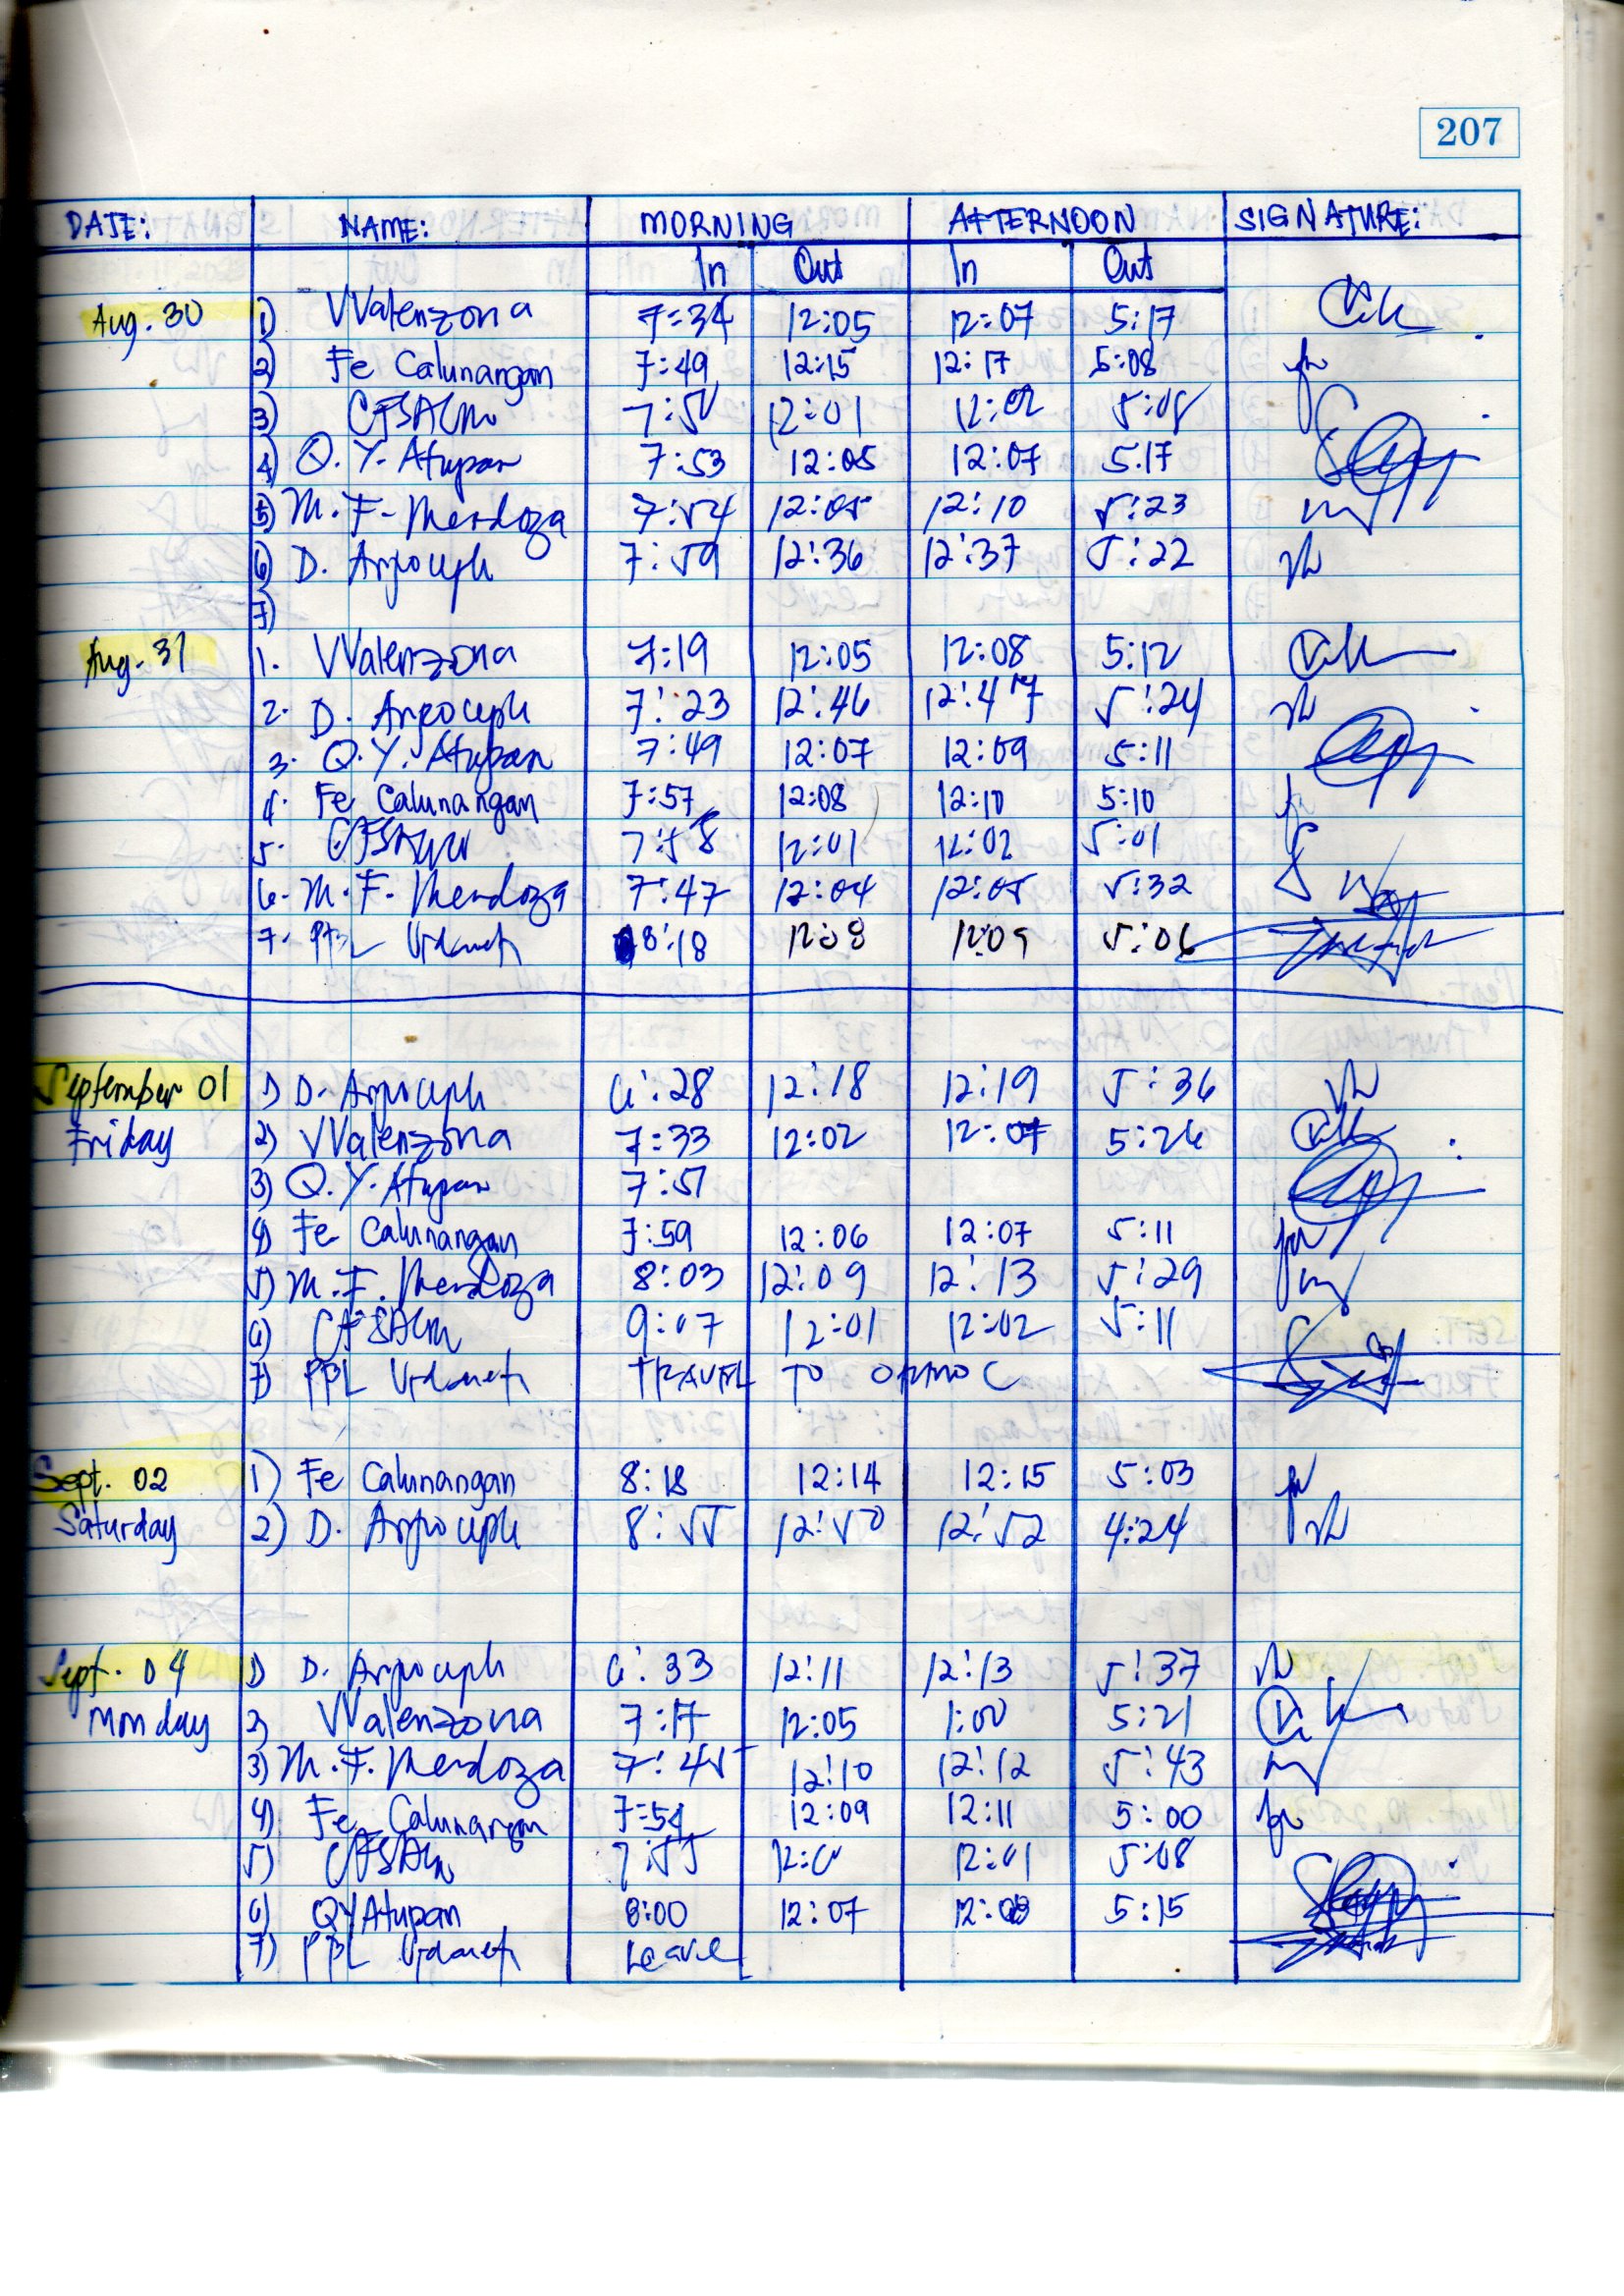 207
DATE: NAME: MORNING AFTERNOON SIGNATURE:
In Out In Out
Aug. 30 1) VValenzona 7:34 12:05 12:07 5:17
2) Fe Calunangan 7:49 12:15 12:17 5:08
3) 12:01 12:02 5:08
4) Q. Y. Atupan 7:53 12:05 12:07 5.17
5) M. F. Mendoza 7:54 12:05 12:10 5:23
6) D. 7:59 12:36 12:37 5:22
7)
Aug. 31 1. VValenzona 7:19 12:05 12:08 5:12
2. D. 7:23 12:46 12:47 5:24
3. Q. Y. Atupan 7:49 12:07 12:09 5:11
4. Fe Calunangan 7:57 12:08 12:10 5:10
5. 7:58 12:01 12:02 5:01
6. M. F. Mendoza 7:47 12:04 12:05 5:32
7. PBL 8:18 12:08 12:09 5:06
September 01 1) D. 6:28 12:18 12:19 5:36
Friday 2) VValenzona 7:33 12:02 12:07 5:26
3) Q. Y. Atupan 7:51
4) Fe Calunangan 7:59 12:06 12:07 5:11
5) M. F. Mendoza 8:03 12:09 12:13 5:29
6) 9:07 12:01 12:02 5:11
7) PBL TRAVEL TO ORMOC
Sept. 02 1) Fe Calunangan 8:18 12:14 12:15 5:03
Saturday 2) D. 8:55 12:50 12:52 4:24
Sept. 04 1) D. 6:33 12:11 12:13 5:37
Monday 2) VValenzona 7:17 12:05 1:00 5:21
3) M. F. Mendoza 7:45 12:10 12:12 5:43
4) Fe Calunangan 7:54 12:09 12:11 5:00
5) 7:55 12:01 5:08
6) QYAtupan 8:00 12:07 12:08 5:15
7) PBL Leave